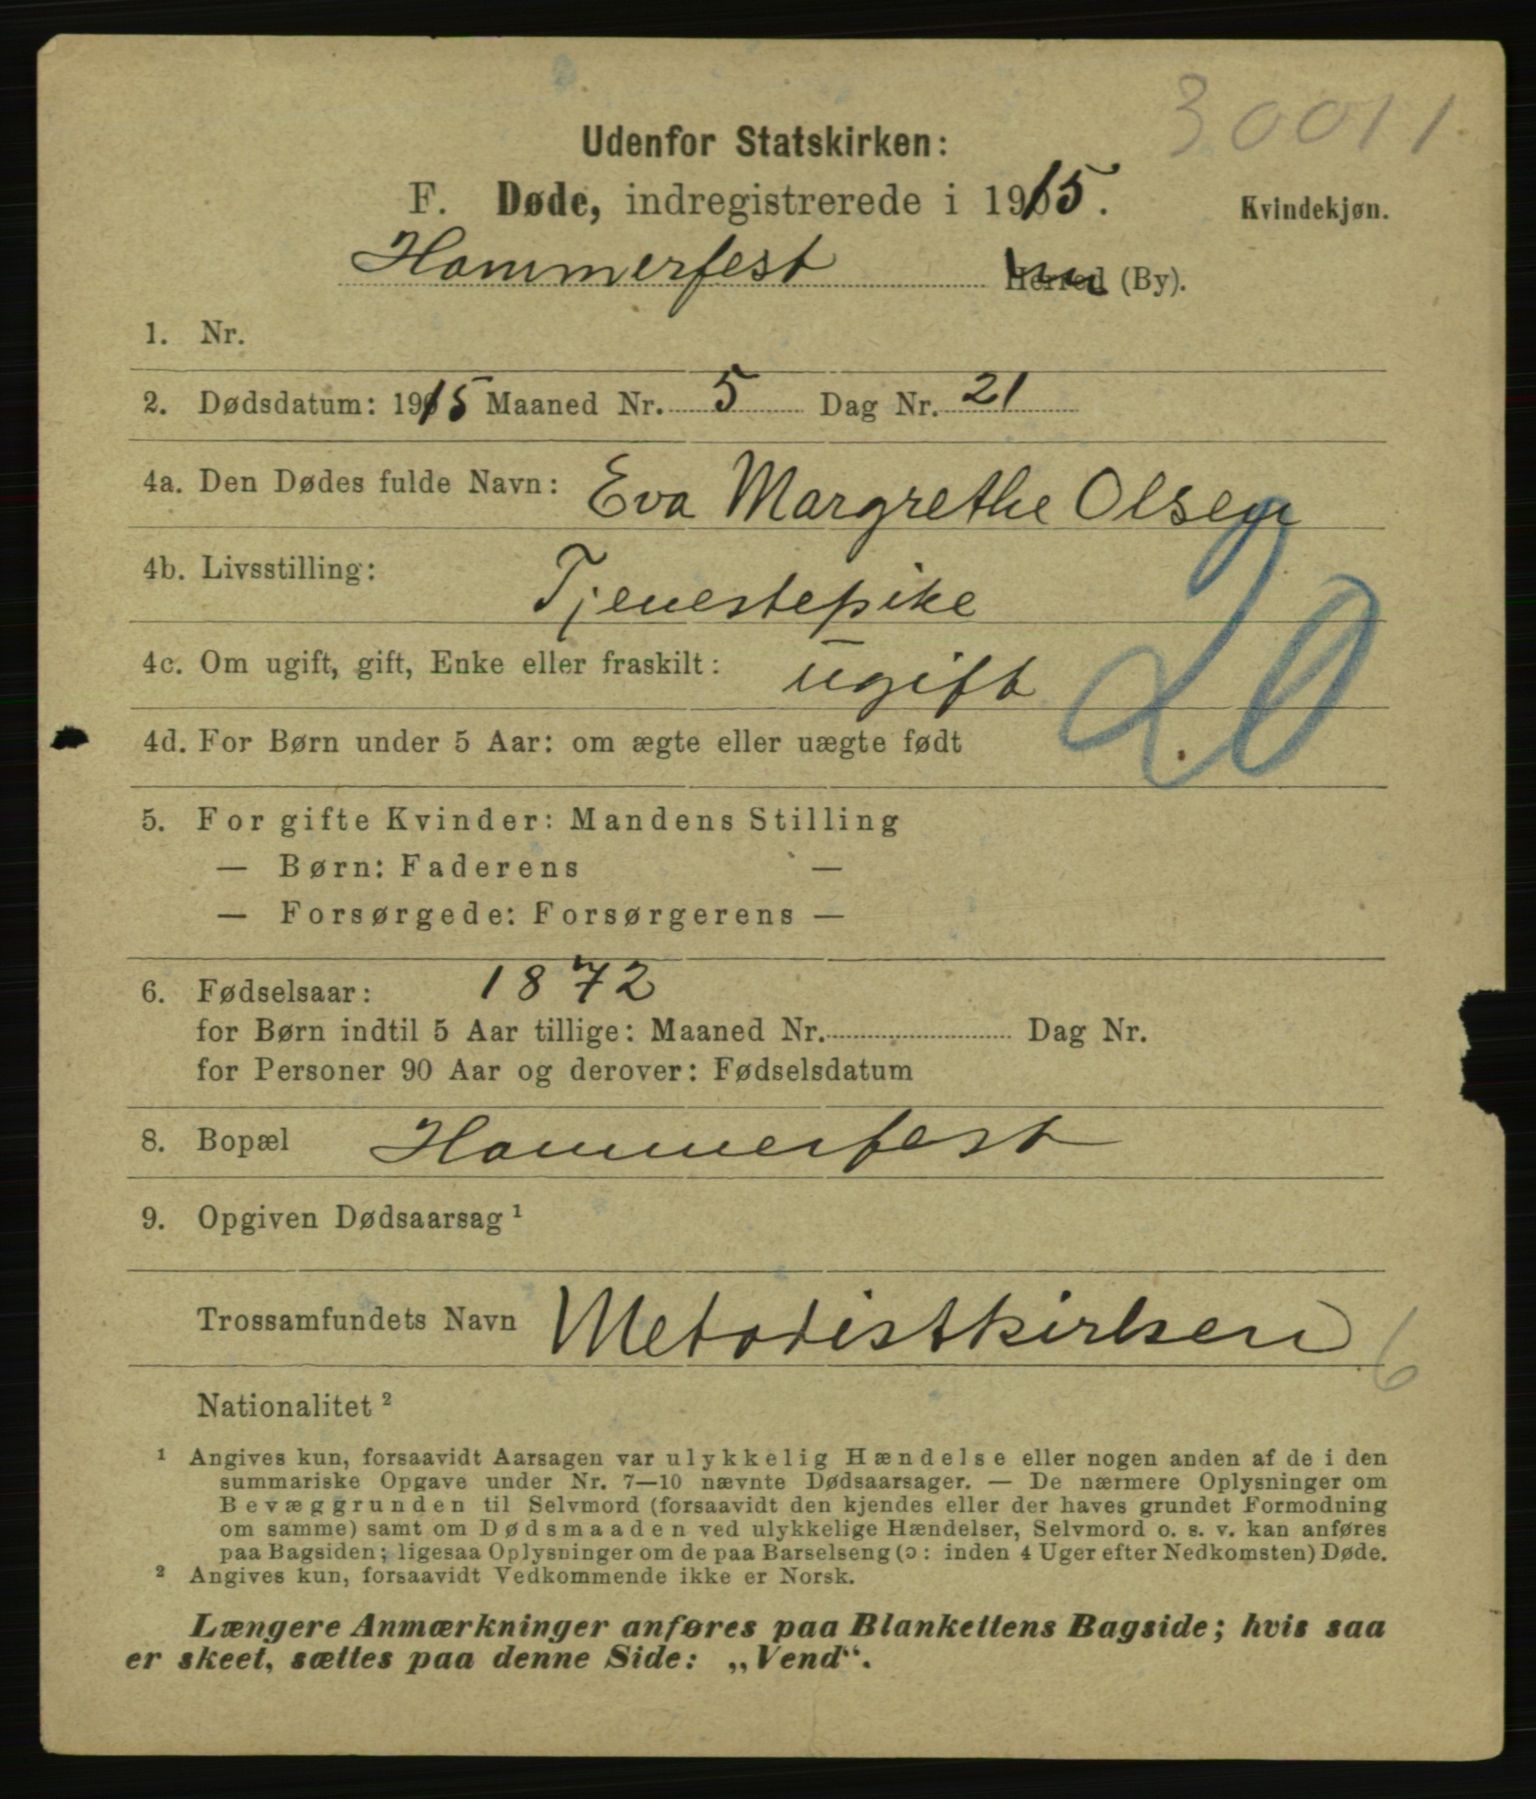 30011.
Udenfor Statskirken:
F. Døde, indregistrerede i 1915. Kvindekjøn.
Hammerfest Herred (By).
1. Nr.
2. Dødsdatum: 1915 Maaned Nr. 5 Dag Nr. 21
4a. Den Dødes fulde Navn: Eva Margrethe Olsen
4b. Livsstilling: Tjenestepike
4c. Om ugift, gift, Enke eller fraskilt: ugift
20
4d. For Børn under 5 Aar: om ægte eller uægte født
5. For gifte Kvinder: Mandens Stilling
— Børn: Faderens —
— Forsørgede: Forsørgerens —
6. Fødselsaar: 1872
for Børn indtil 5 Aar tillige: Maaned Nr. Dag Nr.
for Personer 90 Aar og derover: Fødselsdatum
8. Bopæl Hammerfest
9. Opgiven Dødsaarsag ¹
Trossamfundets Navn Metodistkirken 6
Nationalitet ²
¹ Angives kun, forsaavidt Aarsagen var ulykkelig Hændelse eller nogen anden af de i den
summariske Opgave under Nr. 7—10 nævnte Dødsaarsager. — De nærmere Oplysninger om
Bevæggrunden til Selvmord (forsaavidt den kjendes eller der haves grundet Formodning
om samme) samt om Dødsmaaden ved ulykkelige Hændelser, Selvmord o. s. v. kan anføres
paa Bagsiden; ligesaa Oplysninger om de paa Barselseng (ɔ: inden 4 Uger efter Nedkomsten) Døde.
² Angives kun, forsaavidt Vedkommende ikke er Norsk.
Længere Anmærkninger anføres paa Blankettens Bagside; hvis saa
er skeet, sættes paa denne Side: „Vend“.